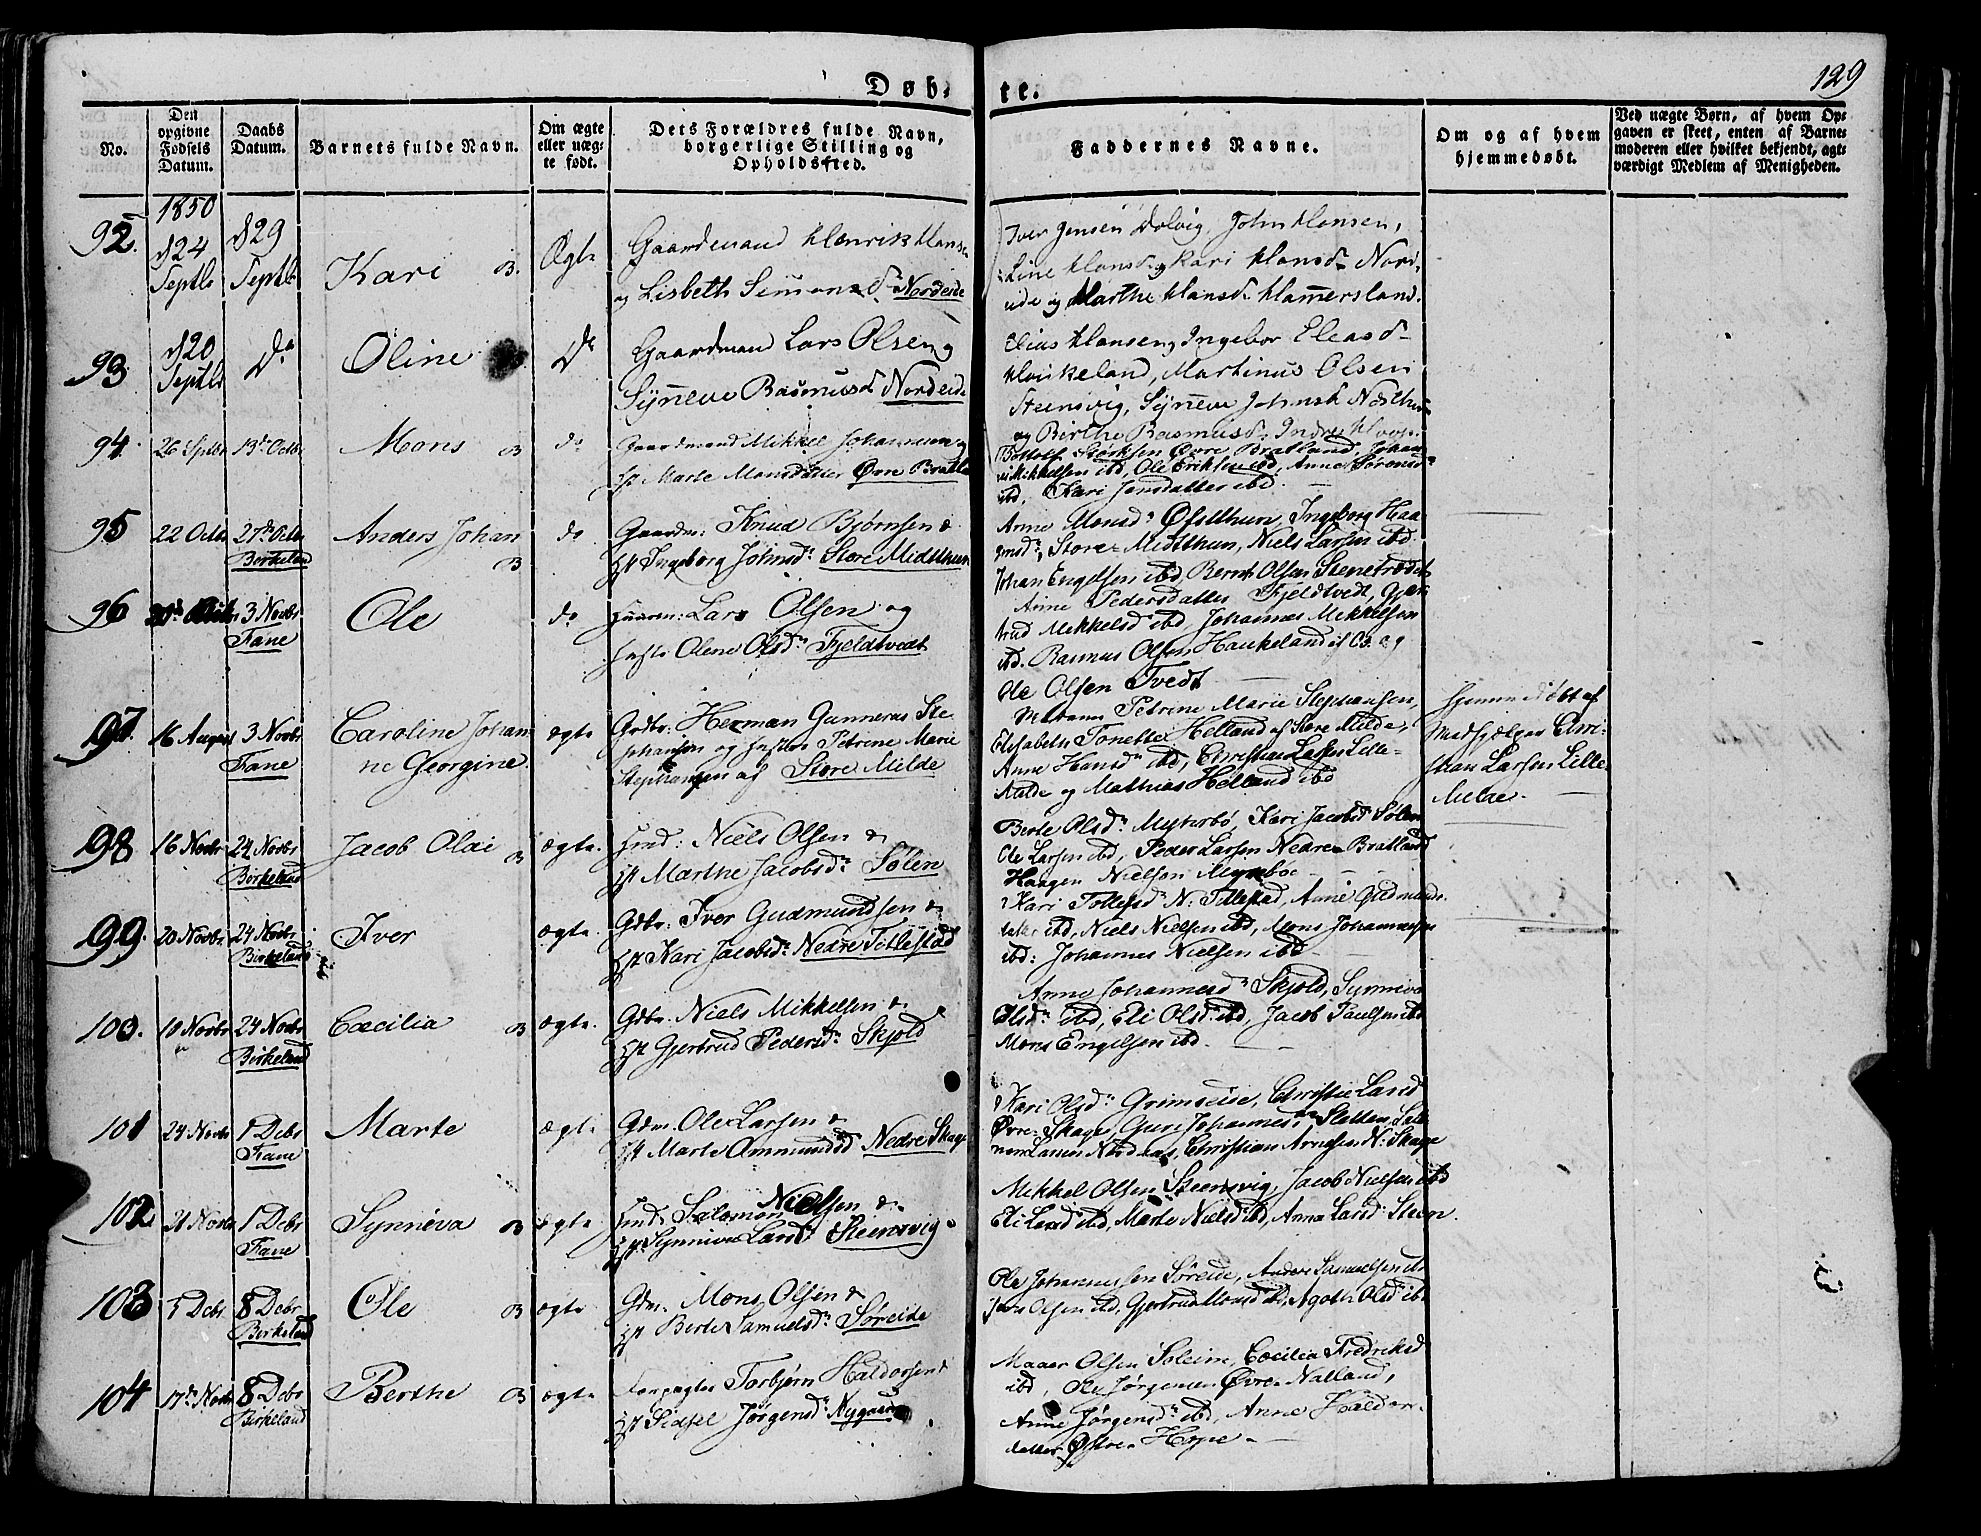 Døbte.
129
No.
Den opgivne Fødsels Datum.
Daabs Datum.
Barnets fulde Navn.
Om ægte eller uægte født.
Dets Forældres fulde Navn, borgerlige Stilling og Opholdssted.
Faddernes Navne.
Om og af hvem hjemmedøbt.
Ved uægte Børn, af hvem Opgaven er skeet, enten af Barnemoderen eller hvilket bekjendt, agtværdigt Medlem af Menigheden.
1850
92. d 24 Septbr d 29 Septbr Kari B. Ægte
Gaardmand Henrik Hans
og Lisbeth Simonsd Nordeide
Iver Jensen Dolvig, John Hansen,
Line Hansd og Kari Hansd Nord-
eide og Marthe Hansd Hammersland.
93. d 20 Septbr Do Oline Do
Gaardmand Lars Olsen og
Synneve Rasmusd Nordeide
Elias Hansen, Ingebor Eleasd
Haukeland, Martinus Olsen
Steensvig, Synneve Johnsd
og Birthe Rasmusd Indre Hope.
94. 26 Sptbr 13de Octbr Mons B do
Gaardmand Mikkel Johannesen og
Hst Marte Monsdatter Øvre Bratla
Bottolf Størksen Øvre Bratland, Johan-
nes Mikkelsen ibd, Ole Eriksen ibd, Anne Sørensd
ibd, Kari Jensdatter ibd.
95 22 Octbr 27de Octbr Birkeland Anders Johan B do
Gaardm: Knud Bjørnsen &
Hst Ingeborg Johnsd: Store Midtthun
Anne Monsd Øfstthun, Ingeborg Haa-
gensd: Store Midtthun, Niels Larsen ibd
Johan Engelsen ibd, Bernt Olsen Stenetrædet
96 3 Novbr Fane Ole do
Huusm: Lars Olsen og
Hustr: Olene Olsd: Fjeldtvedt
Anne Pedersdatter Fjeldtvedt, Gjer-
trud Mikkelsd ibd, Johannes Mikkelsen
ibd. Rasmus Olsen Haukeland og
Ole Olsen Tvedt
97 16 August 3 Novbr Fane Caroline Johan-
ne Georgine. ægte
Grdbr: Herman Gunnerus Ste-
phansen og Hustru Petrine Marie
Stephansen af Store Milde
Madam Petrine Marie Stephansen,
Elisabeth Tonette Helland af Store Milde,
Anne Hansd: ibd, Christian Larsen Lille-
Milde og Mathias Helland ibd
Hjemmedøbt af
Medhjælper Chri-
stian Larsen Lille
Milde.
98 16 Novbr 24 Novbr Birkeland Jacob Olai B ægte.
Hmd: Niels Olsen &
Hst Marthe Jacobsd: Sølen
Berte Olsd: Myrterbø, Kari Jacobsd Sølen
Ole Larsen ibd, Peder Larsen Nedre Bratland
Haagen Nielsen
99. 20 Novbr. 24 Novbr Birkeland Iver ægte.
Gdbr: Iver Gudmundsen &
Hst Kari Jacobsd: Nedre Titlestad
Kari Tollefsd: N. Titlestad, Anne Gudmunds-
datter ibd, Niels Nielsen ibd, Mons Johannessen
ibd: Johannes Nielsen ibd
100. 10 Novbr 24 Novbr Birkeland Cæcilia B ægte.
Gdbr: Niels Mikkelsen &
Hst Gjertrud Pedersd: Skjold
Anne Johannesd: Skjold, Synneva
Olsd: ibd, Eli Olsd: ibd, Jacob Paulsen ibd
Mons Engelsen ibd.
101 24 Novbr 1 Debr Fane Marte ægte
Gdm. Ole Larsen &
Hst Marte Ammundsd Nedre Skage
Kari Olsd: Grimseide, Christie Larsd
Øvre Skage, Guri Johannesd: Sletten,
Larsen Nordaas, Christian Arnesen N: Skage
102 21 Novbr 1 Debr Fane Synneva B ægte.
Hmd: Salomon Nielsen &
Hst Synneva Larsd: Steensvig.
Mikkel Olsen Steensvig, Jacob Nielsen ibd
Eli Larsd ibd, Marte Nielsd ibd, Anna Larsd: Steen.
103 5 Debr. 8 Debr Birkeland Ole B ægte
Gdm. Mons Olsen &
Hst Berte Samuelsd: Søreide
Ole Johannessen Søreide, Anders Samuelsen ibd
Olsen ibd, Gjertrud Monsd ibd, Agathe Olsd ibd
104 17de Novbr 8 Debr Birkeland Berthe B ægte
Forpagter Torbjørn Haldorsen &
Hst Sidsel Jørgensd: Nygaard.
Olsen Soleim, Cæcilia Fredriksd
ibd, Jørgensen Øvre Natland,
Anne Jørgensd: ibd, Anne Haldors-
datter Østre Hope.